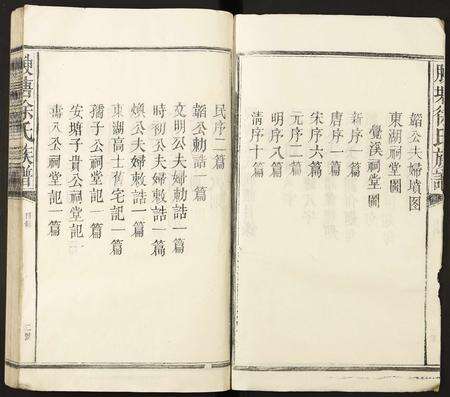 韜公夫婦墳图
東湖祠堂圖
新序一篇
唐序一篇
宋序六篇
元序二篇
明序八篇
清序十篇
民序二篇
韜公勅誥一篇
文明公夫婦勅誥一篇
時初公夫婦敕誥一篇
煥公夫婦敕誥一篇
東湖高士舊宅記一篇
孺子公祠堂記一篇
安塘子貴公祠堂記一篇
八公祠堂記一篇
塘徐氏族譜